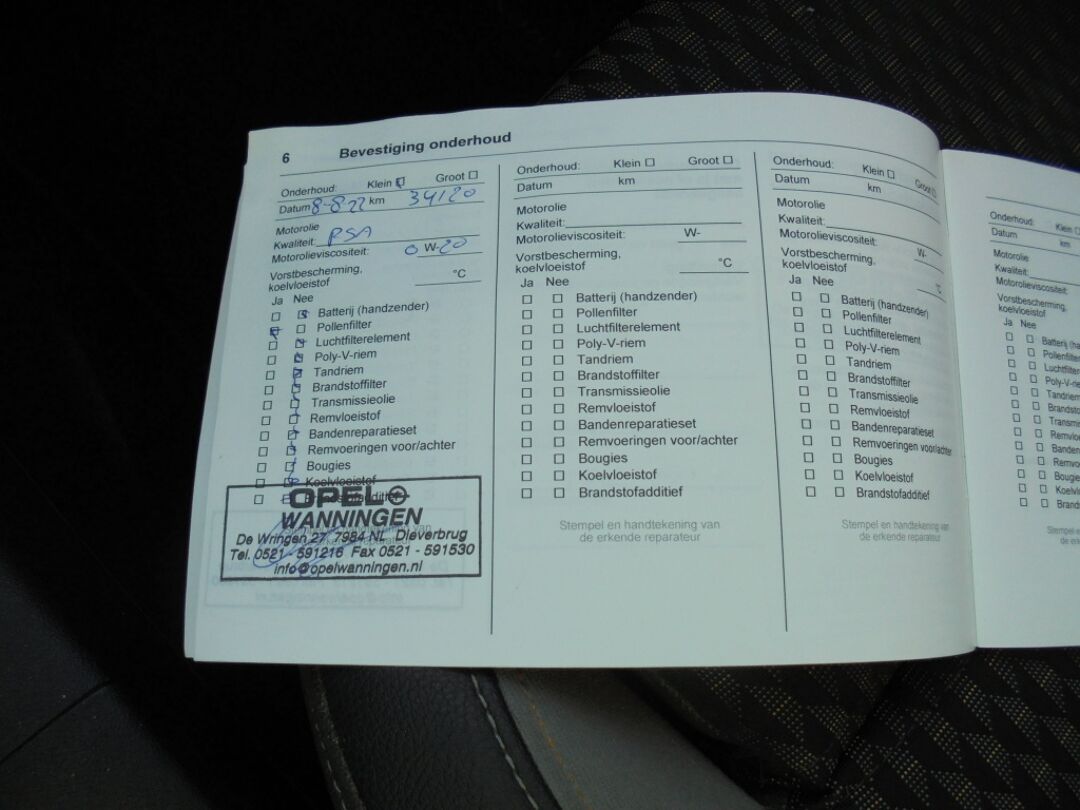 6 Bevestiging onderhoud
Onderhoud: Klein ☑ Groot ☐
Datum 8-8-22 km 34120
Motorolie
Kwaliteit: PSA
Motorolieviscositeit: 0 W-20
Vorstbescherming,
koelvloeistof °C
Ja Nee
Batterij (handzender)
Pollenfilter
Luchtfilterelement
Poly-V-riem
Tandriem
Brandstoffilter
Transmissieolie
Remvloeistof
Bandenreparatieset
Remvoeringen voor/achter
Bougies
Koelvloeistof
Brandstofadditief
OPEL
WANNINGEN
De Wringen 27, 7984 NL Dieverbrug
Tel. 0521 - 591216 Fax 0521 - 591530
info@opelwanningen.nl
Onderhoud: Klein ☐ Groot ☐
Datum km
Motorolie
Kwaliteit:
Motorolieviscositeit: W-
Vorstbescherming,
koelvloeistof °C
Ja Nee
☐ ☐ Batterij (handzender)
☐ ☐ Pollenfilter
☐ ☐ Luchtfilterelement
☐ ☐ Poly-V-riem
☐ ☐ Tandriem
☐ ☐ Brandstoffilter
☐ ☐ Transmissieolie
☐ ☐ Remvloeistof
☐ ☐ Bandenreparatieset
☐ ☐ Remvoeringen voor/achter
☐ ☐ Bougies
☐ ☐ Koelvloeistof
☐ ☐ Brandstofadditief
Stempel en handtekening van
de erkende reparateur
Onderhoud: Klein ☐ Groot ☐
Datum km
Motorolie
Kwaliteit:
Motorolieviscositeit: W-
Vorstbescherming,
koelvloeistof °C
Ja Nee
☐ ☐ Batterij (handzender)
☐ ☐ Pollenfilter
☐ ☐ Luchtfilterelement
☐ ☐ Poly-V-riem
☐ ☐ Tandriem
☐ ☐ Brandstoffilter
☐ ☐ Transmissieolie
☐ ☐ Remvloeistof
☐ ☐ Bandenreparatieset
☐ ☐ Remvoeringen voor/achter
☐ ☐ Bougies
☐ ☐ Koelvloeistof
☐ ☐ Brandstofadditief
Stempel en handtekening van
de erkende reparateur
Onderhoud: Klein
Datum km
Motorolie
Kwaliteit:
Motorolieviscositeit:
Vorstbescherming,
koelvloeistof
Ja Nee